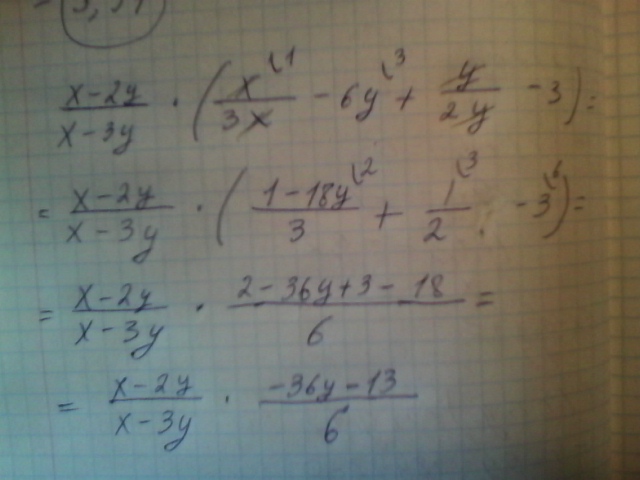 3,
\frac{x-2y}{x-3y} \cdot \left( \frac{x^{\backslash 1}}{3x} - 6y^{\backslash 3} + \frac{y}{2y} - 3 \right) =
= \frac{x-2y}{x-3y} \cdot \left( \frac{1-18y^{\backslash 2}}{3} + \frac{1^{\backslash 3}}{2} - 3^{\backslash 6} \right) =
= \frac{x-2y}{x-3y} \cdot \frac{2-36y+3-18}{6} =
= \frac{x-2y}{x-3y} \cdot \frac{-36y-13}{6}